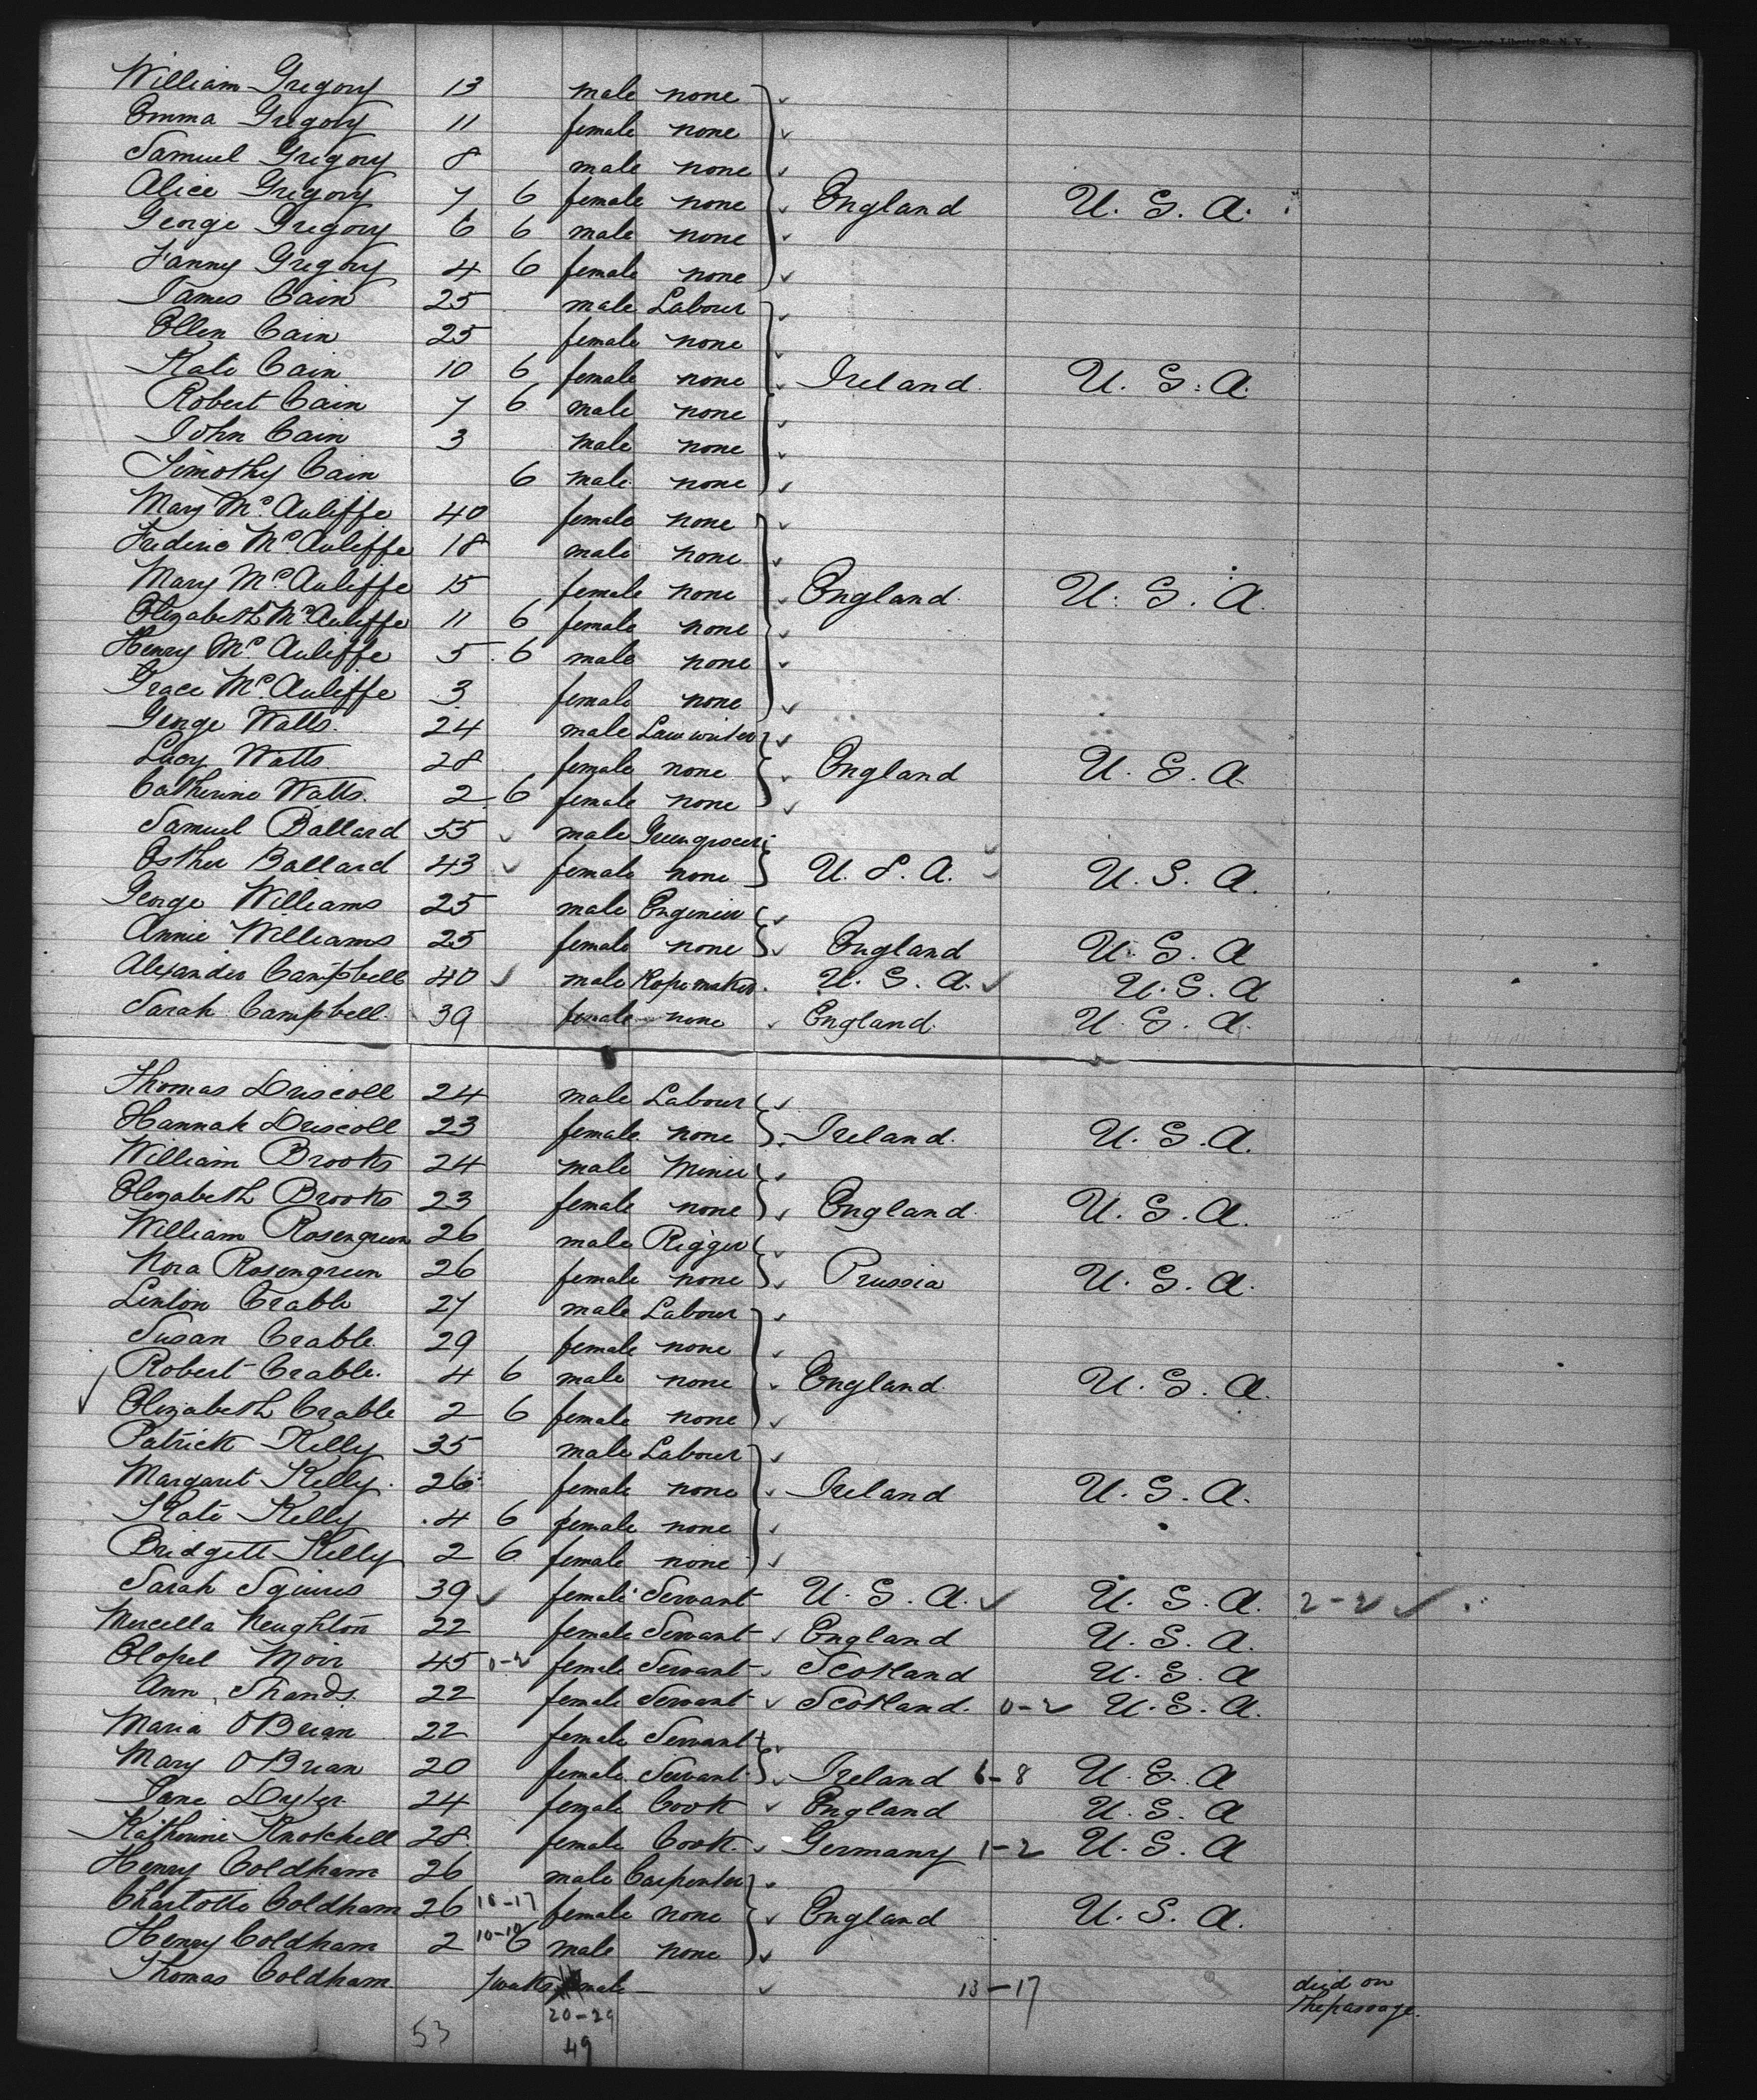 William Gregory 13 male none
Emma Gregory 11 female none
Samuel Gregory 8 male none
Alice Gregory 7 6 female none England U. S. A.
George Gregory 6 6 male none
Fanny Gregory 4 6 female none
James Cain 25 male Labour
Ellen Cain 25 female none
Kate Cain 10 6 female none Ireland U. S. A.
Robert Cain 7 6 male none
John Cain 3 male none
Timothy Cain 6 male none
Mary Mc. Auliffe 40 female none
Frederic Mc. Auliffe 18 male none
Mary Mc. Auliffe 15 female none England U. S. A.
Elizabeth Mc. Auliffe 11 6 female none
Henry Mc. Auliffe 5 6 male none
Grace Mc. Auliffe 3 female none
George Watts. 24 male Law writer
Lucy Watts 28 female none England U. S. A.
Catherine Watts. 2 6 female none
Samuel Ballard 55 ✓ male Greengrocer
Esther Ballard 43 ✓ female none U. S. A. U. S. A.
George Williams 25 male Engineer
Annie Williams 25 female none England U. S. A
Alexander Campbell 40 ✓ male Ropemaker. U. S. A. ✓ U. S. A
Sarah Campbell. 39 female none England. U. S. A.
Thomas Driscoll 24 male Labour
Hannah Driscoll 23 female none Ireland. U. S. A.
William Brooks 24 male Miner
Elizabeth Brooks 23 female none England. U. S. A.
William Rosengreen 26 male Rigger
Nora Rosengreen 26 female none Prussia U. S. A.
Linton Crable 27 male Labour
Susan Crable. 29 female none
Robert Crable. 4 6 male none England. U. S. A.
Elizabeth Crable 2 6 female none
Patrick Kelly 35 male Labour
Margaret Kelly. 26 female none Ireland U. S. A.
Kate Kelly 4 6 female none
Bridgett Kelly 2 6 female none
Sarah Squires 39 ✓ female Servant U. S. A. ✓ U. S. A. 2-2 ✓
Mercella Neughton 22 female Servant England U. S. A.
Moir 45 0-2 female Servant Scotland U. S. A
Ann Shands. 22 female Servant Scotland. 0-2 U. S. A.
Maria OBrian 22 female Servant
Mary OBrian 20 female Servant Ireland 6-8 U. S. A
Jane 24 female Cook England U. S. A
Katherine Knotchell 28. female Cook. Germany 1-2 U. S. A
Henry Coldham 26 male Carpenter
Charlotte Coldham 26 10-17 female none England U. S. A.
Henry Coldham 2 10-10 6 male none
Thomas Coldham male 13-17 died on
the passage.
20-29
53 49